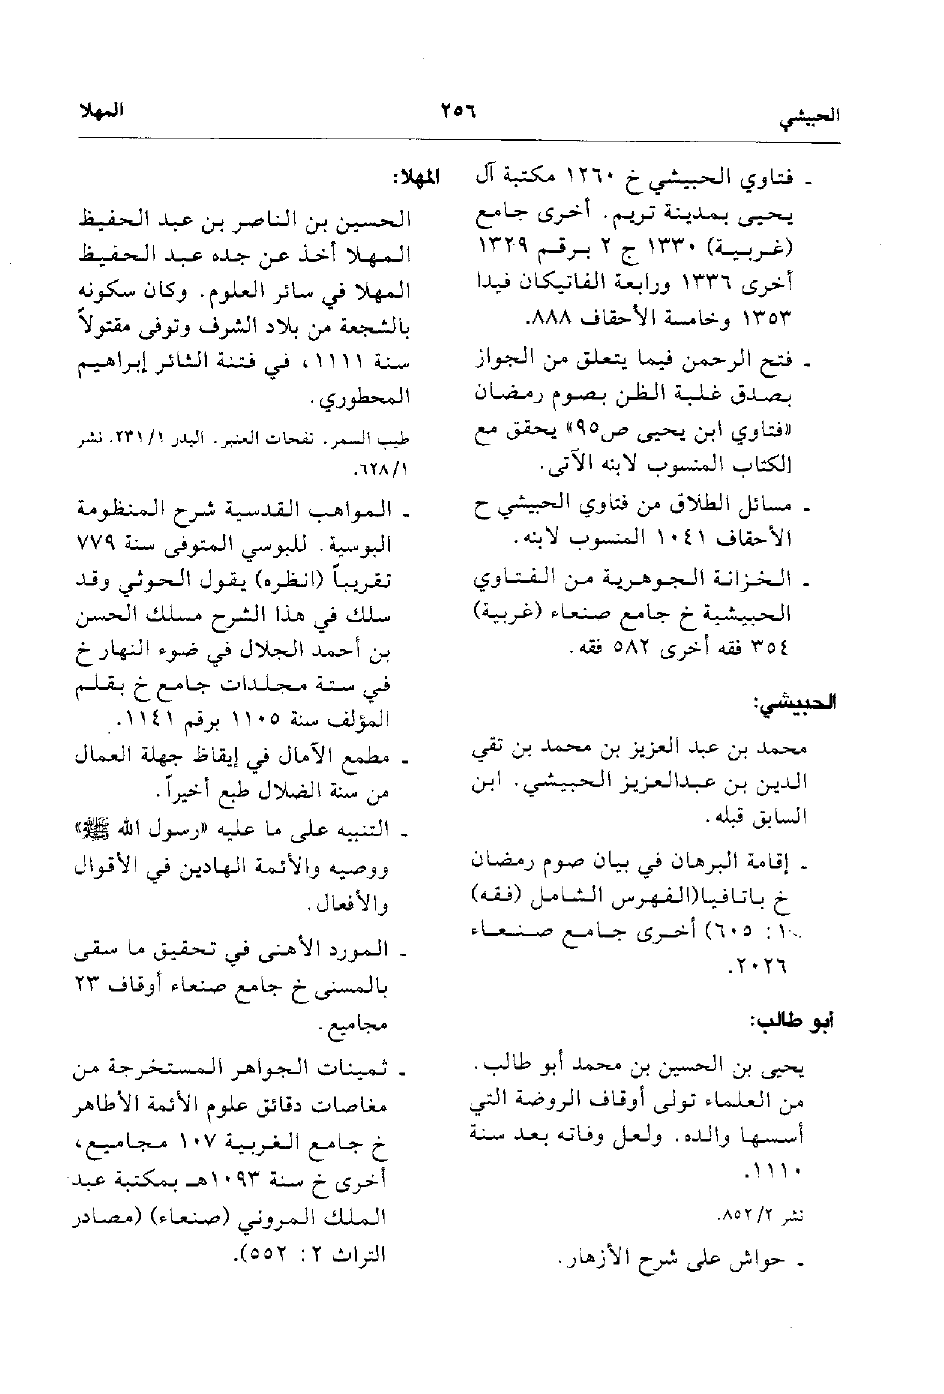 الحبيشي
٢٥٦
المهلا
- فتاوي الحبيشي خ ١٢٦٠ مكتبة آل
يحيى بمدينة تريم. أخرى جامع
(غربية) ١٣٣٠ ج ٢ برقم ١٣٢٩
أخرى ١٣٣٦ ورابعة الفاتيكان فيدا
١٣٥٣ وخامسة الأحقاف ٨٨٨.
- فتح الرحمن فيما يتعلق من الجواز
بصدق غلبة الظن بصوم رمضان
«فتاوي ابن يحيى ص٩٥» يحقق مع
الكتاب المنسوب لابنه الآتي.
- مسائل الطلاق من فتاوي الحبيشي ح
الأحقاف ١٠٤١ المنسوب لابنه.
- الخزانة الجوهرية من الفتاوي
الحبيشية خ جامع صنعاء (غربية)
٣٥٤ فقه أخرى ٥٨٢ فقه.
الحبيشي:
محمد بن عبد العزيز بن محمد بن تقي
الدين بن عبدالعزيز الحبيشي. ابن
السابق قبله.
- إقامة البرهان في بيان صوم رمضان
خ باتافيا(الفهرس الشامل (فقه)
١: ٦٠٥) أخرى جامع صنعاء
٢٠٢٦.
أبو طالب:
يحيى بن الحسين بن محمد أبو طالب.
من العلماء تولى أوقاف الروضة التي
أسسها والده. ولعل وفاته بعد سنة
١١١٠.
نشر ٨٥٢/٢.
- حواش على شرح الأزهار.
المهلا:
الحسين بن الناصر بن عبد الحفيظ
المهلا أخذ عن جده عبد الحفيظ
المهلا في سائر العلوم. وكان سكونه
بالشجعة من بلاد الشرف وتوفى مقتولاً
سنة ١١١١، في فتنة الثائر إبراهيم
المحطوري.
طيب السمر. نفحات العنبر. البدر ٢٣١/١. نشر
٦٢٨/١.
- المواهب القدسية شرح المنظومة
البوسية. للبوسي المتوفى سنة ٧٧٩
تقريباً (انظره) يقول الحوثي وقد
سلك في هذا الشرح مسلك الحسن
بن أحمد الجلال في ضوء النهار خ
في ستة مجلدات جامع خ بقلم
المؤلف سنة ١١٠٥ برقم ١١٤١.
- مطمع الآمال في إيقاظ جهلة العمال
من سنة الضلال طبع أخيراً.
- التنبيه على ما عليه «رسول الله ﷺ»
ووصيه والأئمة الهادين في الأقوال
والأفعال.
- المورد الأهنى في تحقيق ما سقى
بالمسنى خ جامع صنعاء أوقاف ٢٣
مجاميع.
- ثمينات الجواهر المستخرجة من
مغاصات دقائق علوم الأئمة الأطاهر
خ جامع الغربية ١٠٧ مجاميع،
أخرى خ سنة ١٠٩٣هـ بمكتبة عبد
الملك المروني (صنعاء) (مصادر
التراث ٢: ٥٥٢).